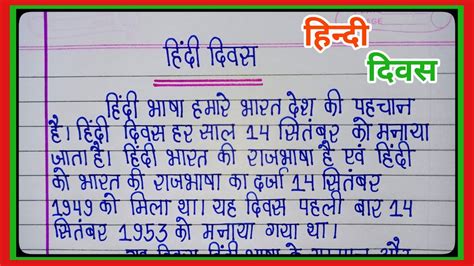 हिन्दी
दिवस
हिंदी दिवस
हिंदी भाषा हमारे भारत देश की पहचान
है। हिंदी दिवस हर साल 14 सितंबर को मनाया
जाता है। हिंदी भारत की राजभाषा है एवं हिंदी
को भारत की राजभाषा का दर्जा 14 सितंबर
1949 को मिला था। यह दिवस पहली बार 14
सितंबर 1953 को मनाया गया था।
हिंदी भाषा के